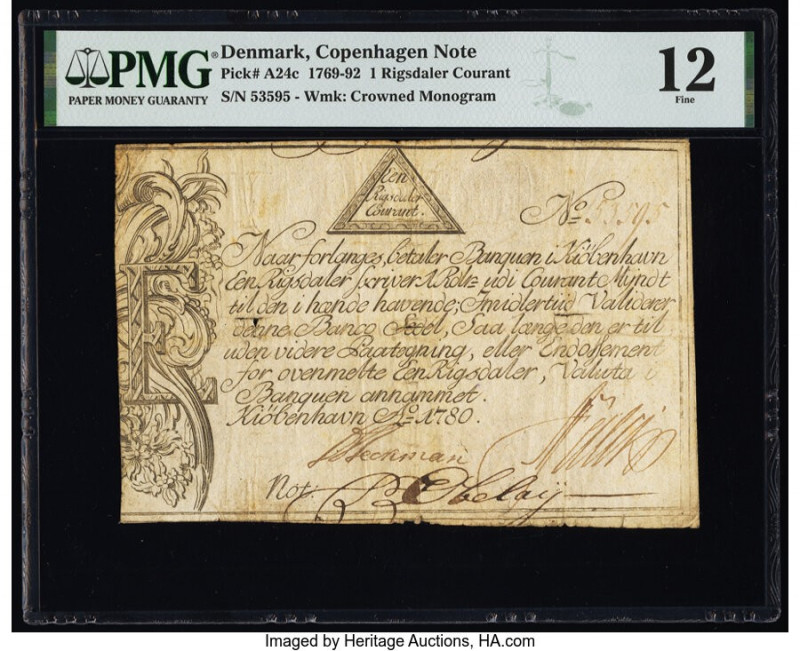 PMG®
PAPER MONEY GUARANTY
Denmark, Copenhagen Note
Pick# A24c 1769-92 1 Rigsdaler Courant
S/N 53595 - Wmk: Crowned Monogram
12
Fine
Een
Rigsdaler
Courant.
No 53595
Naar forlanges, betaler Banquen i Kiöbenhavn
Een Rigsdaler skriver 1 Rdlr udi Courant Mÿndt
til den i hænde havende; Imidlertid Validerer
denne Banco Sedel, Saa længe den er til
uden videre Paategning, eller Endossement
for ovenmelte Een Rigsdaler, Valuta i
Banquen annammet.
Kiöbenhavn Ao 1780.
Not:
E
Imaged by Heritage Auctions, HA.com